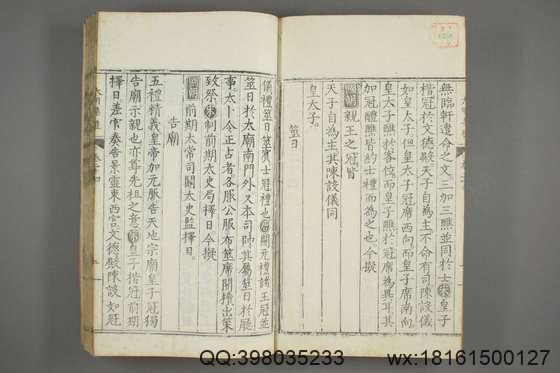 無臨軒遣命之文三加三醮並同於士宋皇子
楷冠於文德殿天子自為主不命有司陳設儀
如皇太子但皇太子冠席西向而皇子席南向
皇太子醮於客位而皇子醮於冠席為異耳其
加冠醴醮皆約士禮而為之也今擬
國朝親王之冠皆
天子自為主其陳設儀同
皇太子
筮日
儀禮筮日筮賓士冠禮也開元禮諸王冠並
筮日於太廟南門外又本司帥其屬筮日於廳
事太卜令正占者各服公服布筮席開櫝出策
致祭宋制前期太史局擇日今擬
國朝前期太常司關太史監擇日
告廟
五禮精義皇帝加元服告天地宗廟皇子冠獨
告廟示親也亦尊先祖之意宋皇子楷冠前期
擇日差官奏告景靈東西宮文德殿陳設如冠
QQ:398035233
wx:18161500127